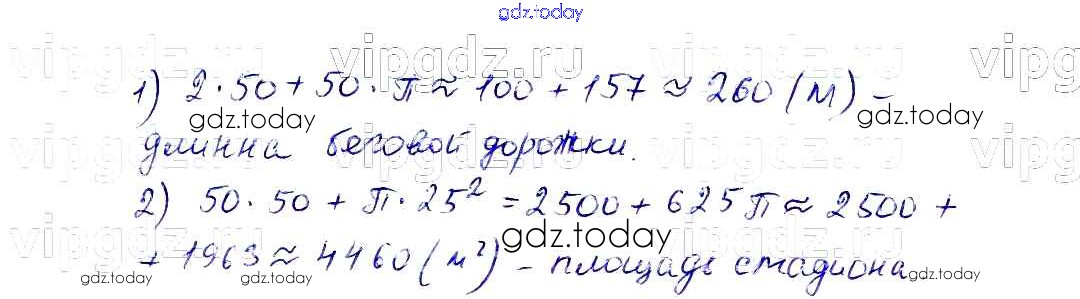 gdz.today
vipgdz.ru vipgdz.ru vipgdz.ru vipgdz
1) 2·50 + 50·π ≈ 100 + 157 ≈ 260 (м) –
gdz.today gdz.today gdz.today
длинна беговой дорожки.
vipgdz.ru vipgdz.ru vipgdz.ru vipgdz
2) 50·50 + π·25² = 2500 + 625π ≈ 2500 +
gdz.today
+ 1963 ≈ 4460 (м²) – площадь стадиона
vipgdz.ru vipgdz.ru vipgdz.ru vipgdz
gdz.today gdz.today